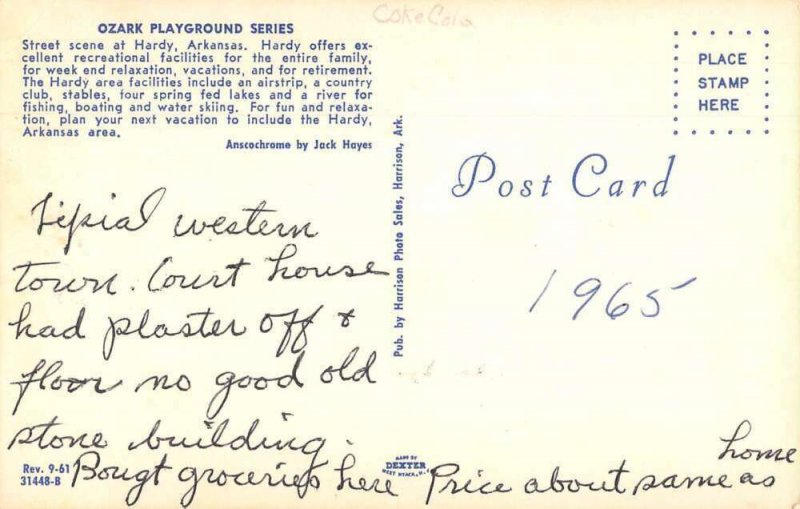 Coke Cola
OZARK PLAYGROUND SERIES
Street scene at Hardy, Arkansas. Hardy offers ex-
cellent recreational facilities for the entire family,
for week end relaxation, vacations, and for retirement.
The Hardy area facilities include an airstrip, a country
club, stables, four spring fed lakes and a river for
fishing, boating and water skiing. For fun and relaxa-
tion, plan your next vacation to include the Hardy,
Arkansas area.
Anscochrome by Jack Hayes
Tipial western
town. Court house
had plaster off &
floor no good old
stone building.
Bougt groceries here Price about same as
home
Rev. 9-61
31448-B
Pub. by Harrison Photo Sales, Harrison, Ark.
MADE BY
DEXTER
WEST NYACK, N.Y.
PLACE
STAMP
HERE
Post Card
1965